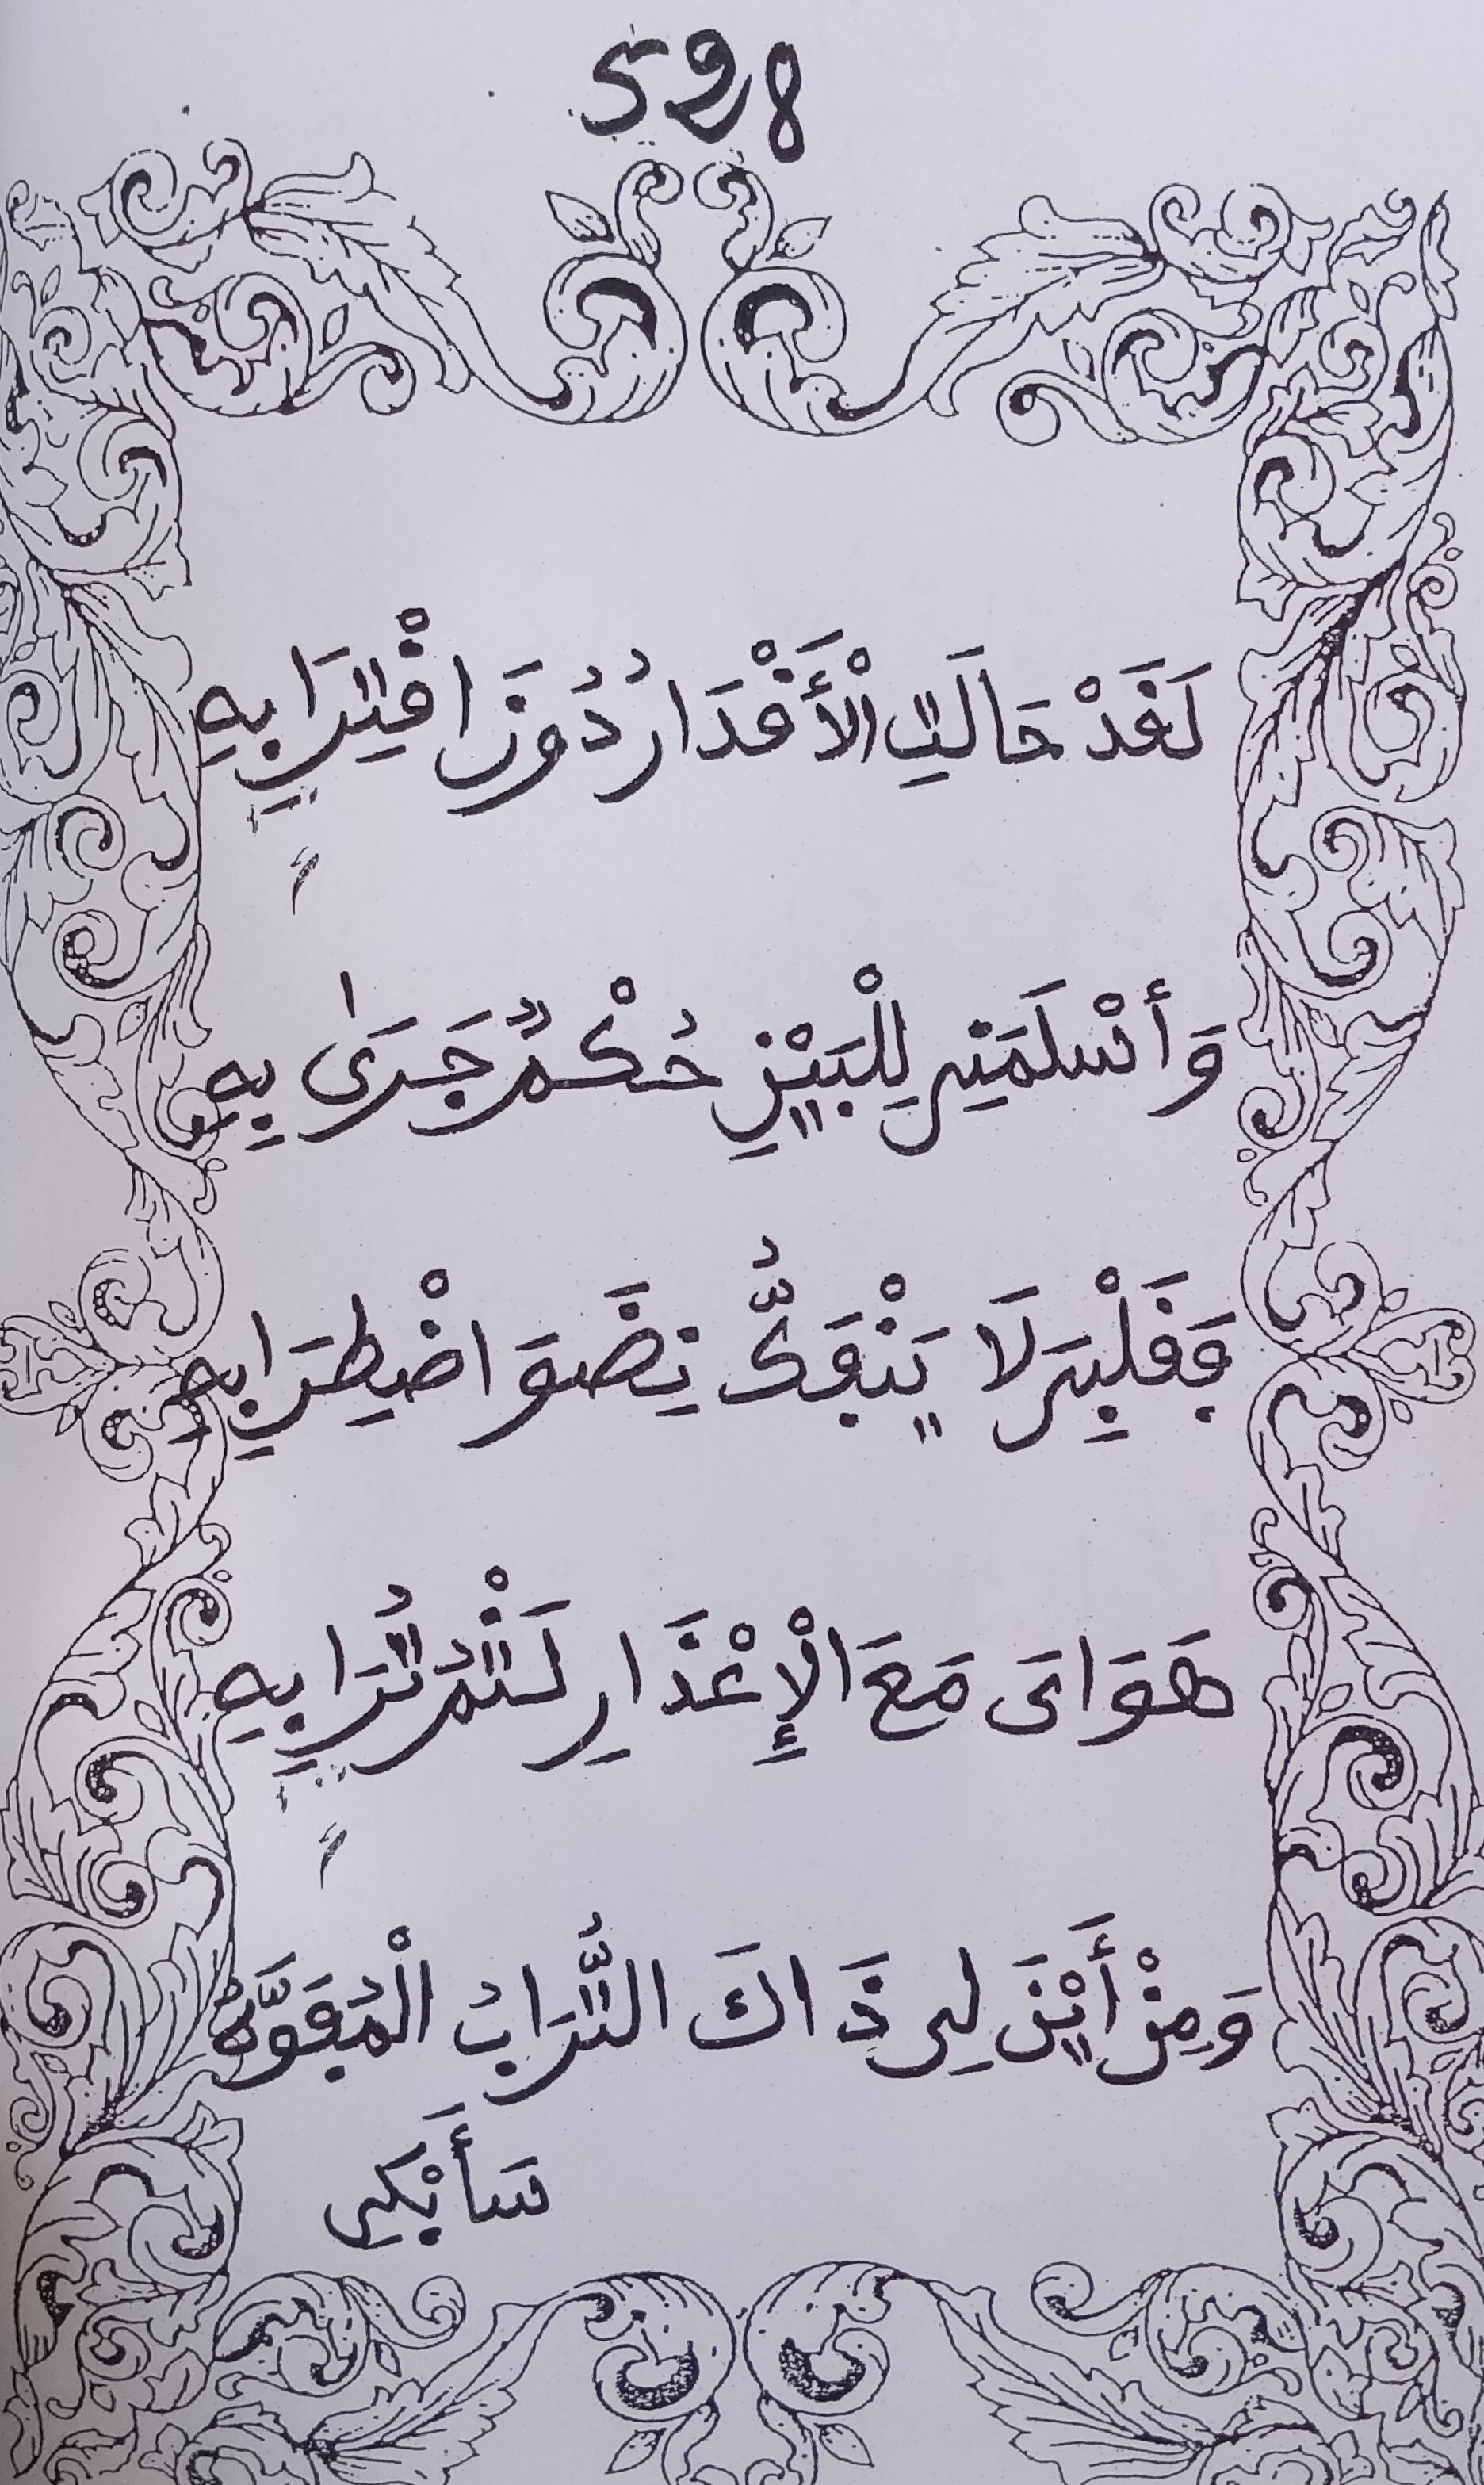 528
لَقَدْ حَالَتِ الْأَقْدَارُ دُونَ اقْتِرَابِهِ
وَأَسْلَمَنِي لِلْبَيْنِ حُكْمٌ جَرَىٰ بِهِ
فَقَلْبِيَ لَا يَنْفَكُّ نِضْوَ اضْطِرَابِهِ
هَوَايَ مَعَ الْإِعْذَارِ لَثْمُ تُرَابِهِ
وَمِنْ أَيْنَ لِي ذَاكَ التُّرَابُ الْمُفَوَّهُ
سَأَبْكِي